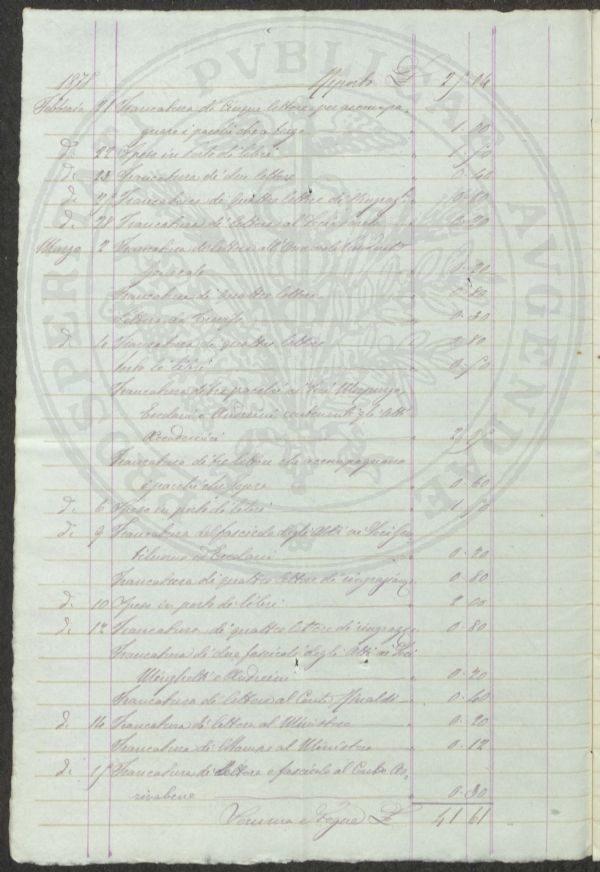 1875 Riporto L 25.04
Febbraio 21 Francatura di cinque lettere per accompa-
gnare i pacchi che a tergo " 1.00
D. 22 Spese in porto di libri " 1.50
D. 23 Francatura di due lettere " 0.40
D. 25 Francatura di quattro lettere di Ringraz. " 0.80
D. 28 Francatura di lettera al " 0.20
Marzo 2 Francatura di lettera
" 0.20
Francatura di quattro lettere " 0.80
Lettera da " 0.30
D. 4 Francatura di quattro lettere " 0.80
Porto di libri " 0.50
Francatura di tre pacchi ai Soci
Ercolani e Andreini contenenti gli Atti
Accademici " 2.
Francatura di tre lettere che accompagnano
i pacchi che sopra " 0.60
D. 6 Spese in porto di libri " 1.50
D. 9 Francatura del fascicolo degli Atti ai Soci
ed Ercolani " 0.20
Francatura di quattro lettere di ringraz. " 0.80
D. 10 Spese in porto di libri " 2.00
D. 12 Francatura di quattro lettere di ringraz. " 0.80
Francatura di due fascicoli degli Atti ai Soci
Minghetti e Andreini " 0.20
Francatura di lettera al Conte " 0.40
D. 14 Francatura di lettera al Ministro " 0.20
Francatura di Stampe al Ministro " 0.12
D. 15 Francatura di lettera e fascicolo al Conte Ar-
rivabene " 0.30
Somma e segue L 41.61
PROSPERITATI PVBLICAE AVGENDAE